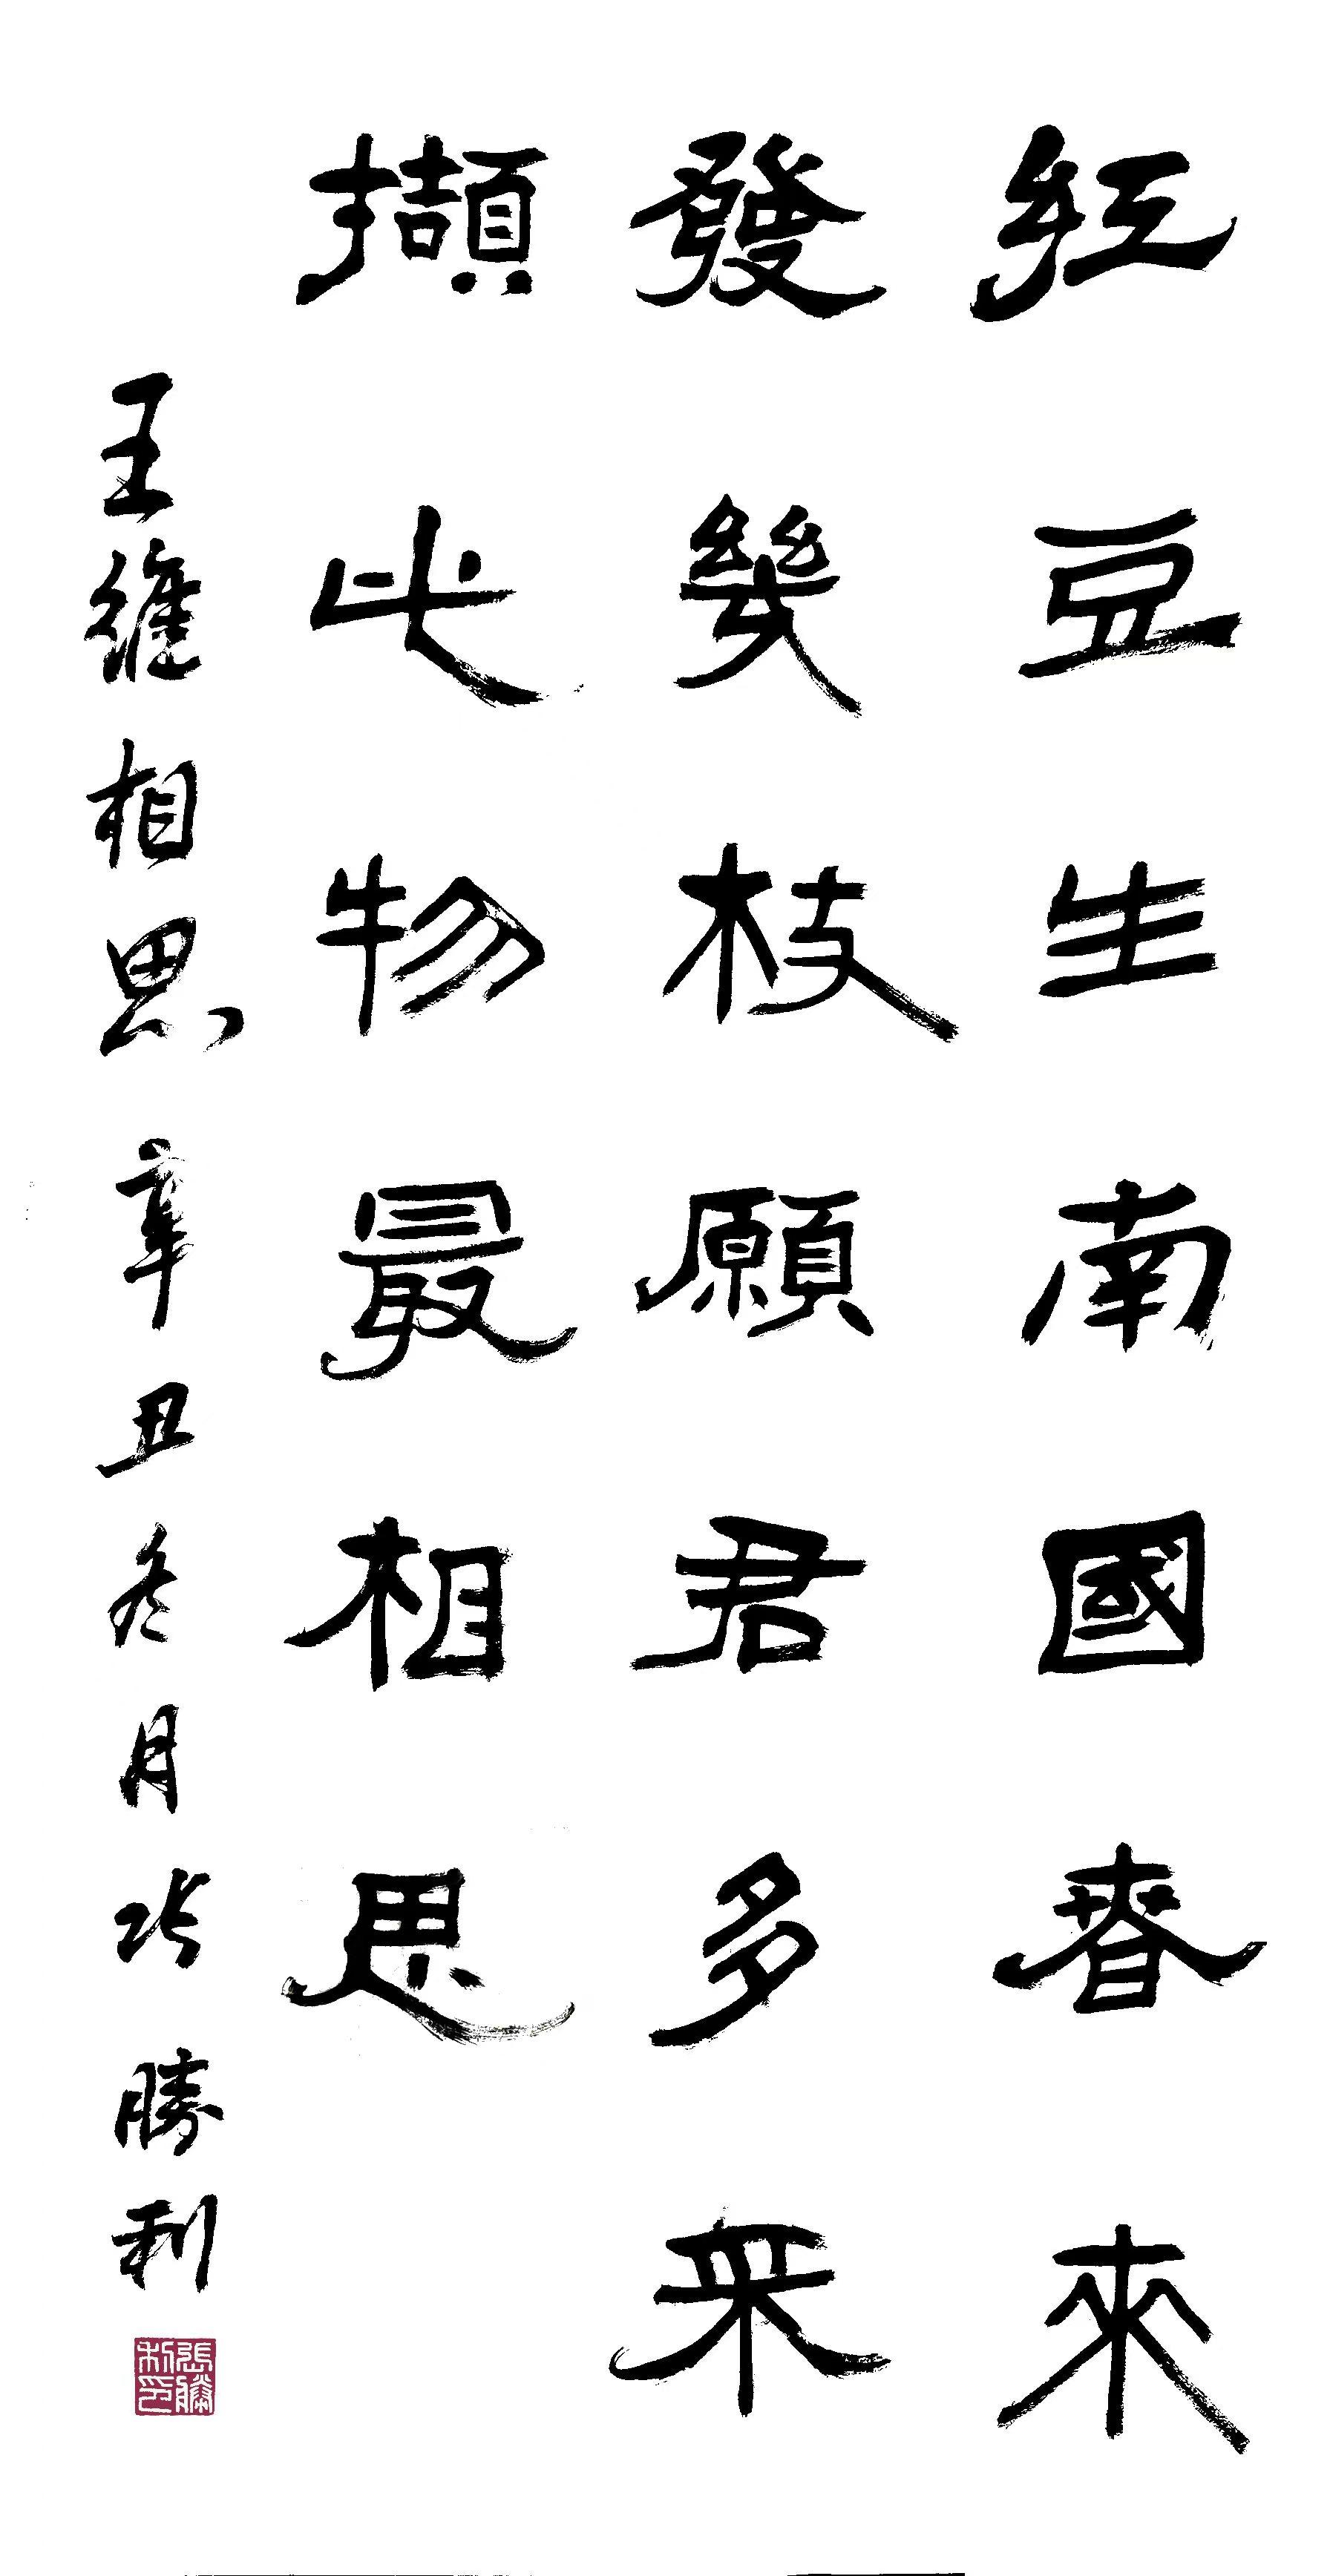 紅豆生南國春來
發幾枝願君多采
擷此物最相思
王維相思辛丑冬月張勝利
張勝利印